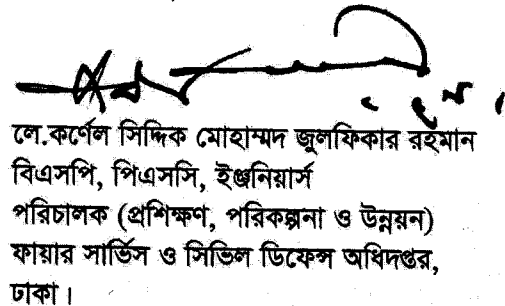 লে.কর্ণেল সিদ্দিক মোহাম্মদ জুলফিকার রহমান
বিএসপি, পিএসসি, ইঞ্জনিয়ার্স
পরিচালক (প্রশিক্ষণ, পরিকল্পনা ও উন্নয়ন)
ফায়ার সার্ভিস ও সিভিল ডিফেন্স অধিদপ্তর,
ঢাকা।